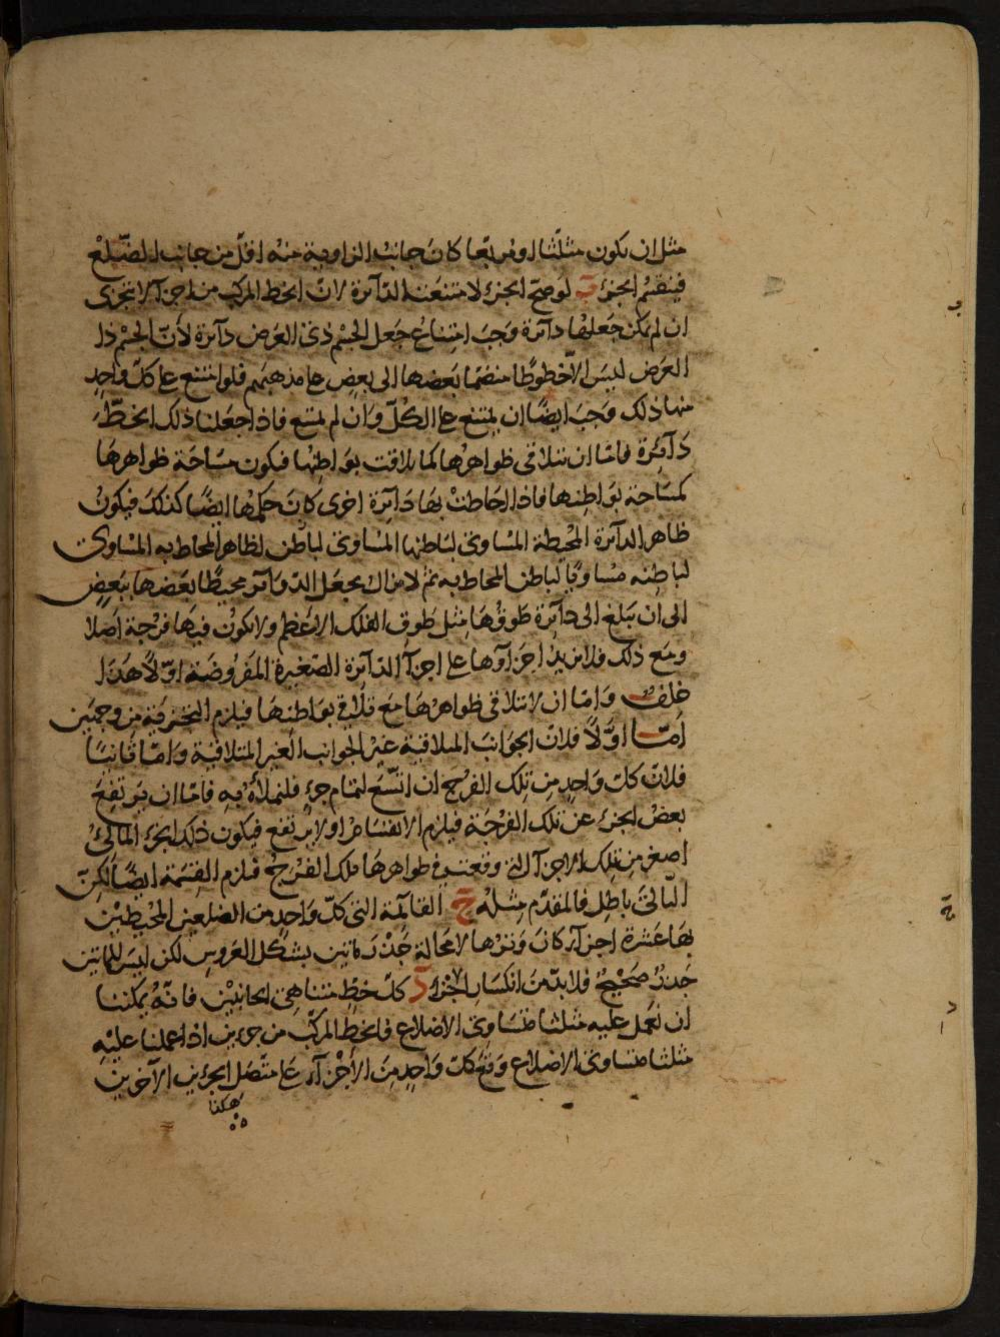 مثل ان يكون مثلثا او مربعا كان جانب الزاوية منه اقل من جانب الضلع
فينقسم الجزء ب لو صح الجزء لامتنعت الدآئرة لان الخط المركب من اجزآ لا تتجزى
ان لم يمكن جعلها دآئرة وجب امتناع جعل الجسم ذى العرض دآئرة لأن الجسم ذا
العرض ليس الا خطوطا منضما بعضها الى بعض على مذهبهم فلو امتنع على كل واحد
منها ذلك وجب ايضا ان يمتنع على الكل وان لم يمتنع فاذا جعلنا ذلك الخط
دآئرة فاما ان تتلاقى ظواهرها كما تلاقت بواطنها فيكون مساحة ظواهرها
كمساحة بواطنها فاذا احاطت بها دآئرة اخرى كان حكمها ايضا كذلك فيكون
ظاهر الدآئرة المحيطة المساوى لباطنها المساوى لباطن لظاهر المحاط به المساوى
لباطنه مساويا لباطن المحاط به ثم لا يزال يجعل الدوآئر محيطا بعضها ببعض
الى ان تبلغ الى دآئرة طوقها مثل طوق الفلك الاعظم ولا تكون فيها فرجة اصلا
ومع ذلك فلا يزيد اجزآوها على اجزآ الدآئرة الصغيرة المفروضة اولا هذا
خلف واما ان لا تتلاقى ظواهرها مع تلاقى بواطنها فيلزم التجزية من وجهين
اما اولا فلان الجوانب الملاقية غير الجوانب الغير المتلاقية واما ثانيا
فلان كل واحد من تلك الفرج ان اتسع لتمام جزء فلنملأه به فاما ان يرتفع
بعض الجزء عن تلك الفرجة فيلزم الانقسام او لا يرتفع فيكون ذلك الجزء المالئ
اصغر من تلك الاجزآ التى وقعت فى ظواهرها تلك الفرج فيلزم القسمة ايضا لكن
التالى باطل فالمقدم مثله ج القآئمة التى كل واحد من الضلعين المحيطين
بها عشرة اجزآ كان وترها لا محالة جذر مائتين بشكل العروس لكن ليس للمائتين
جذر صحيح فلا بد من انكسار الجزء د كل خط متناهى الجانبين فانه يمكننا
ان نعمل عليه مثلثا متساوى الاضلاع فالخط المركب من جزءين اذا عملنا عليه
مثلثا متساوى الاضلاع وقع كل واحد من الأجزآء على متصل الجزءين الآخرين
هكذا